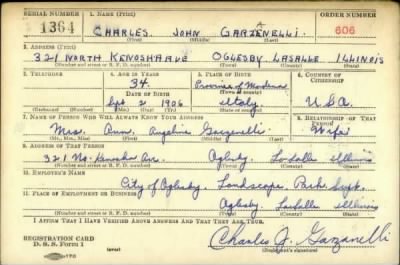 SERIAL NUMBER 1. NAME (Print) ORDER NUMBER
1364 CHARLES JOHN GARZANELLI 606
(First) (Middle) (Last)
2. ADDRESS (Print)
321 NORTH KENOSHA AVE OGLESBY LASALLE ILLINOIS
(Number and street or R. F. D. number) (Town) (County) (State)
3. TELEPHONE 4. AGE IN YEARS 5. PLACE OF BIRTH 6. COUNTRY OF CITIZENSHIP
34 Province of Modena
DATE OF BIRTH (Town or county)
Sept 20 1906 Italy U.S.A.
(Exchange) (Number) (Mo.) (Day) (Yr.) (State or country)
7. NAME OF PERSON WHO WILL ALWAYS KNOW YOUR ADDRESS 8. RELATIONSHIP OF THAT PERSON
Mrs. Ann Angeline Garzanelli Wife
(Mr., Mrs., Miss) (First) (Middle) (Last)
9. ADDRESS OF THAT PERSON
321 No. Kenosha Ave. Oglesby LaSalle Illinois
(Number and street or R. F. D. number) (Town) (County) (State)
10. EMPLOYER'S NAME
City of Oglesby. Landscape. Park Supt.
11. PLACE OF EMPLOYMENT OR BUSINESS
Oglesby. LaSalle Illinois
(Number and street or R. F. D. number) (Town) (County) (State)
I AFFIRM THAT I HAVE VERIFIED ABOVE ANSWERS AND THAT THEY ARE TRUE.
REGISTRATION CARD
D. S. S. Form 1 (over) Charles J. Garzanelli
(Registrant's signature)